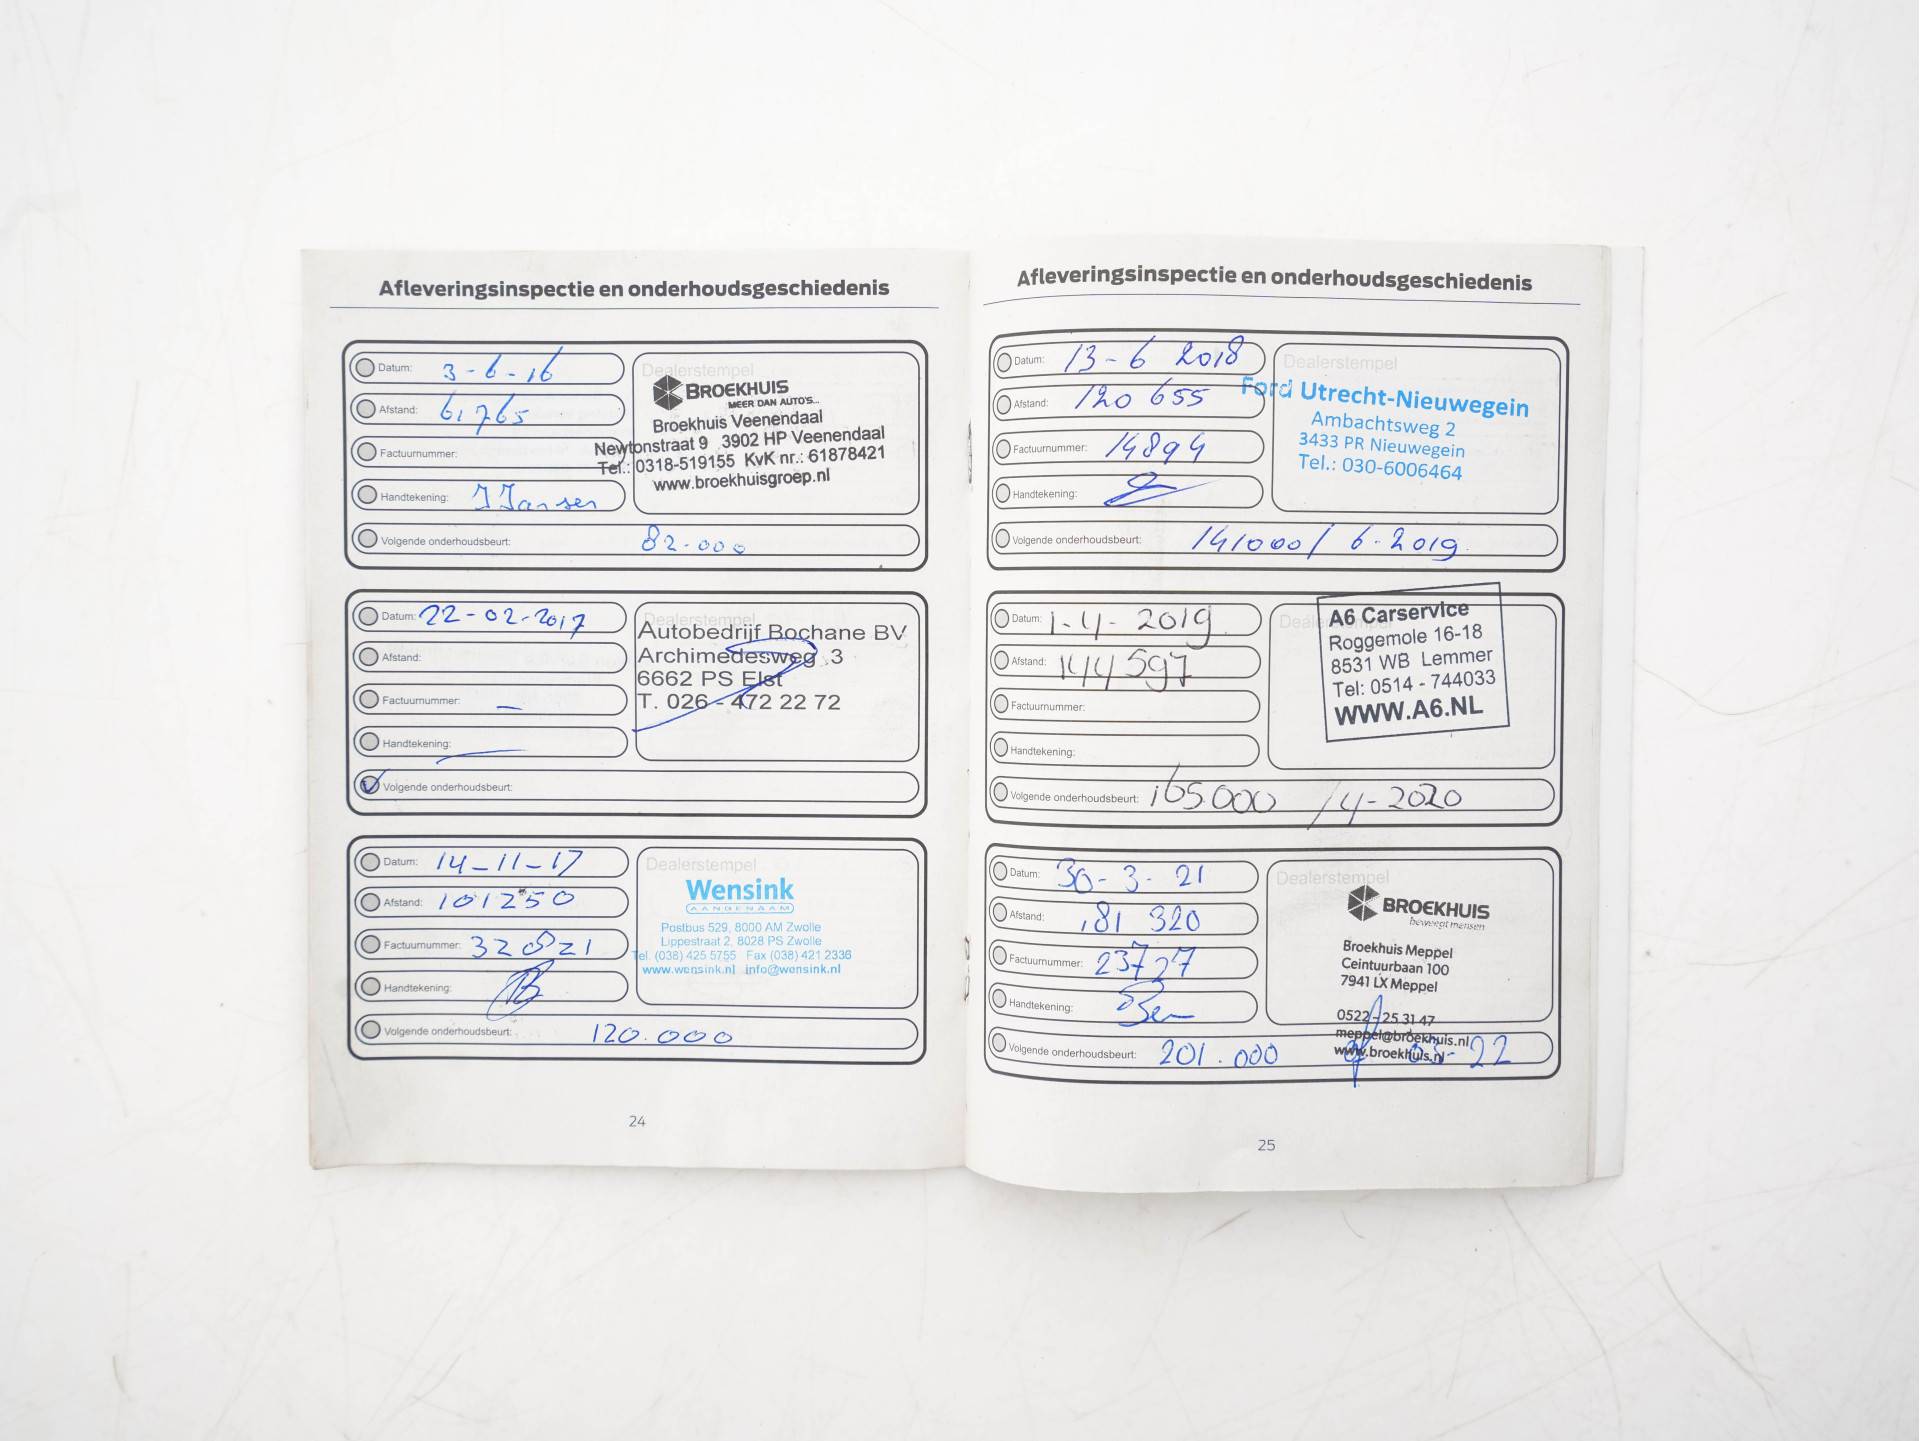 Afleveringsinspectie en onderhoudsgeschiedenis
Datum: 3-6-16
Afstand: 61765
Factuurnummer:
Handtekening: J Jansen
Volgende onderhoudsbeurt: 82.000
Dealerstempel
BROEKHUIS
MEER DAN AUTO'S...
Broekhuis Veenendaal
Newtonstraat 9 3902 HP Veenendaal
Tel.: 0318-519155 KvK nr.: 61878421
www.broekhuisgroep.nl
Datum: 22-02-2017
Afstand:
Factuurnummer: —
Handtekening: —
Volgende onderhoudsbeurt:
Dealerstempel
Autobedrijf Bochane BV
Archimedesweg 3
6662 PS Elst
T. 026 - 472 22 72
Datum: 14-11-17
Afstand: 101250
Factuurnummer: 320821
Handtekening:
Volgende onderhoudsbeurt: 120.000
Dealerstempel
Wensink
AANGENAAM
Postbus 529, 8000 AM Zwolle
Lippestraat 2, 8028 PS Zwolle
Tel. (038) 425 5755 Fax (038) 421 2336
www.wensink.nl info@wensink.nl
24
Afleveringsinspectie en onderhoudsgeschiedenis
Datum: 13-6 2018
Afstand: 120 655
Factuurnummer: 14894
Handtekening:
Volgende onderhoudsbeurt: 141000 / 6-2019
Dealerstempel
Ford Utrecht-Nieuwegein
Ambachtsweg 2
3433 PR Nieuwegein
Tel.: 030-6006464
Datum: 1-4-2019
Afstand: 144597
Factuurnummer:
Handtekening:
Volgende onderhoudsbeurt: 165.000 /4-2020
Dealerstempel
A6 Carservice
Roggemole 16-18
8531 WB Lemmer
Tel: 0514 - 744033
WWW.A6.NL
Datum: 30-3-21
Afstand: 181 320
Factuurnummer: 23727
Handtekening:
Volgende onderhoudsbeurt: 201.000 of 03-22
Dealerstempel
BROEKHUIS
beweegt mensen
Broekhuis Meppel
Ceintuurbaan 100
7941 LX Meppel
0522 - 25 31 47
meppel@broekhuis.nl
www.broekhuis.nl
25